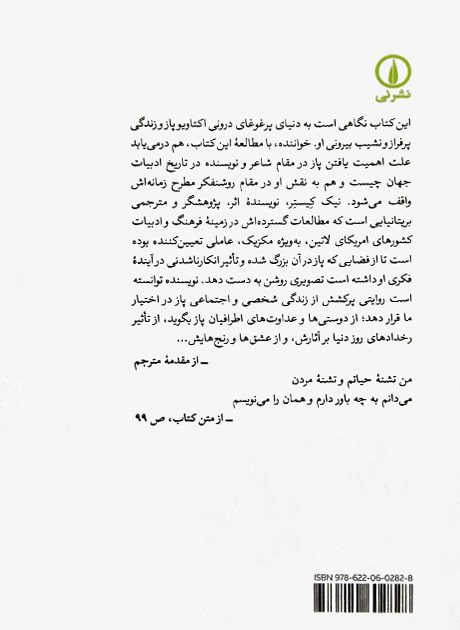 نشرنی
این کتاب نگاهی است به دنیای پرغوغای درونی اکتاویو پاز و زندگی
پرفراز و نشیب بیرونی او. خواننده، با مطالعهٔ این کتاب، هم درمی‌یابد
علت اهمیت یافتن پاز در مقام شاعر و نویسنده در تاریخ ادبیات
جهان چیست و هم به نقش او در مقام روشنفکر مطرح زمانه‌اش
واقف می‌شود. نیک کِیستِر، نویسندهٔ اثر، پژوهشگر و مترجمی
بریتانیایی است که مطالعات گسترده‌اش در زمینهٔ فرهنگ و ادبیات
کشورهای امریکای لاتین، به‌ویژه مکزیک، عاملی تعیین‌کننده بوده
است تا از فضایی که پاز در آن بزرگ شده و تأثیر انکارناشدنی در آیندهٔ
فکری او داشته است تصویری روشن به دست دهد. نویسنده توانسته
است روایتی پرکشش از زندگی شخصی و اجتماعی پاز در اختیار
ما قرار دهد؛ از دوستی‌ها و عداوت‌های اطرافیان پاز بگوید، از تأثیر
رخدادهای روز دنیا بر آثارش، و از عشق‌ها و رنج‌هایش...
ــ از مقدمهٔ مترجم
من تشنهٔ حیاتم و تشنهٔ مردن
می‌دانم به چه باور دارم و همان را می‌نویسم
ــ از متن کتاب، ص ۹۹
ISBN 978-622-06-0282-8